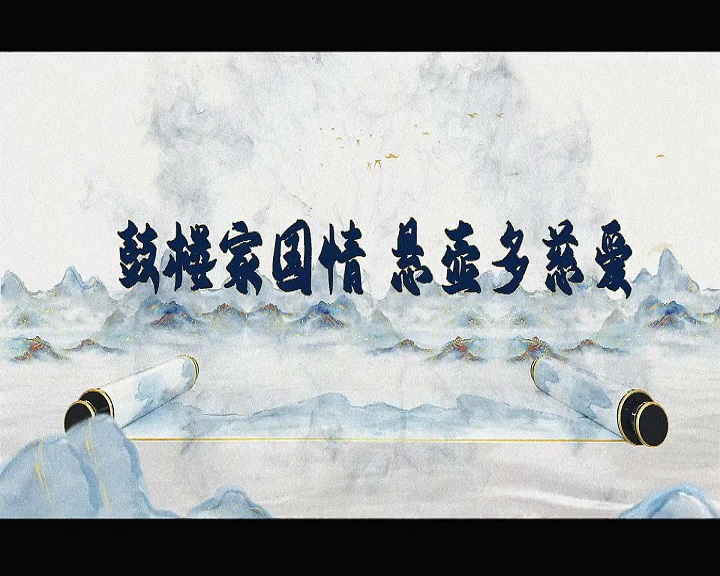 鼓楼家国情 悬壶多慈爱